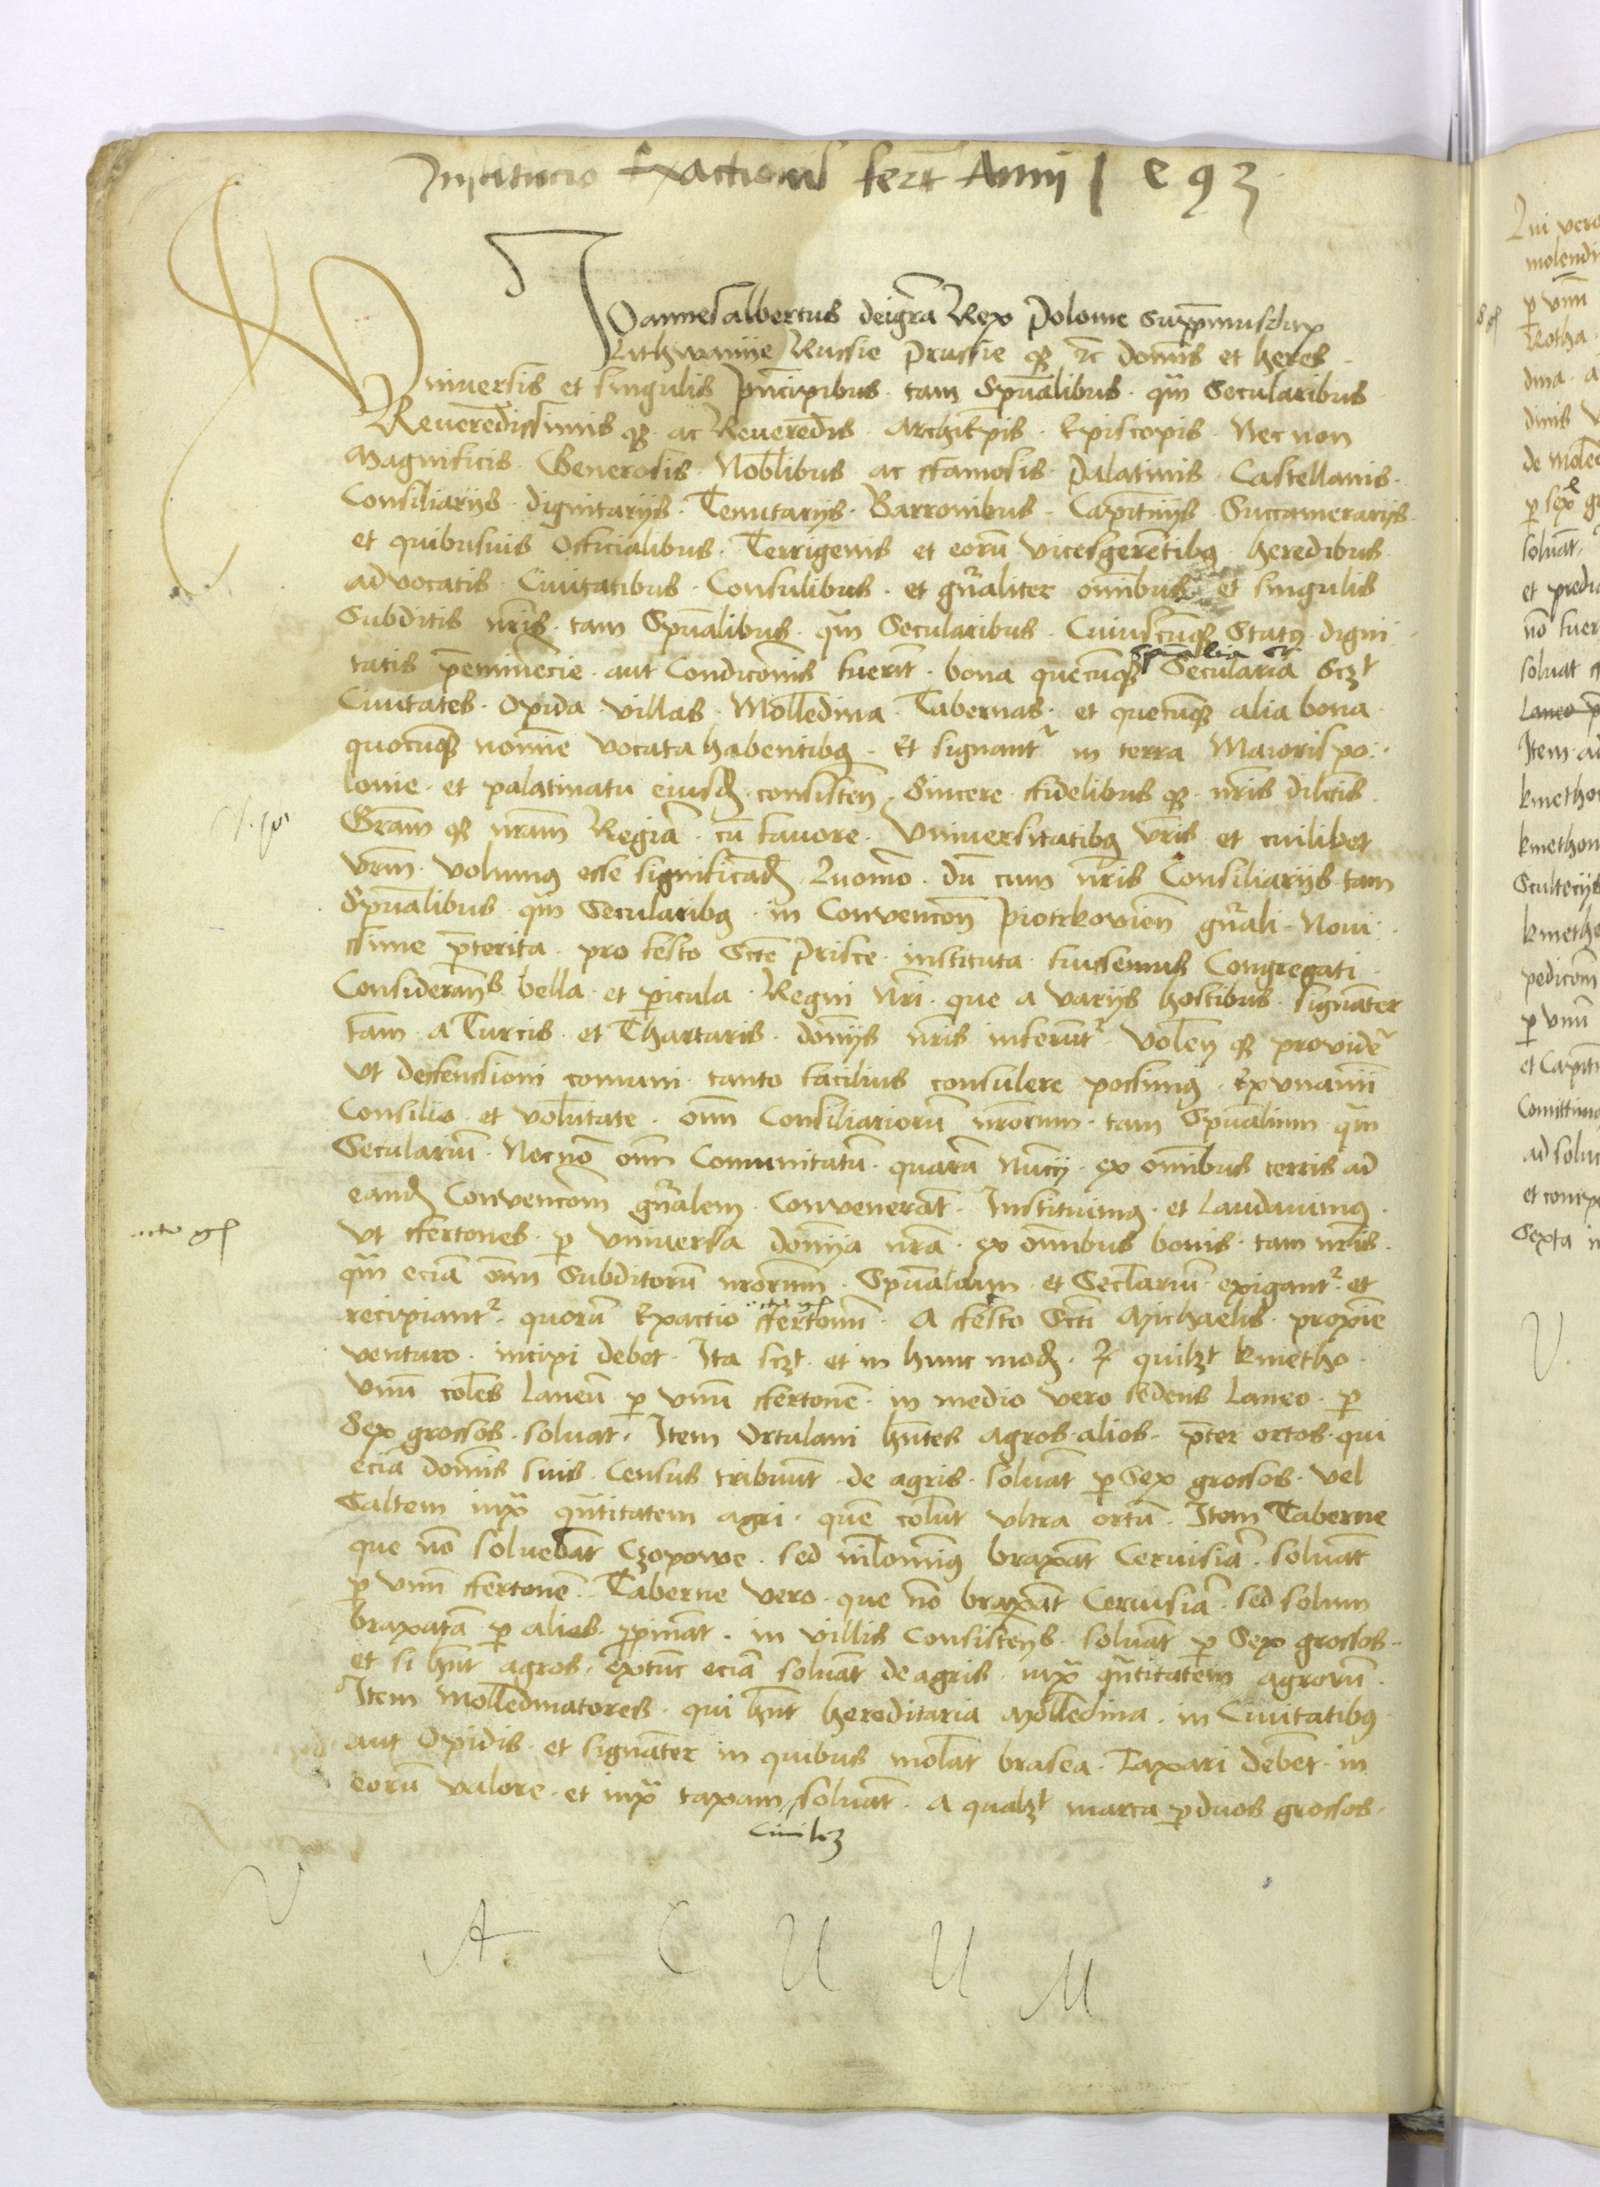 Institucio Exactionis fert Anni 1 e 93
Joannes albertus dei gra Rex Polonie Suppmus dux
Lithwanie Russie Prussie qz zc domis et heres
Universis et singulis pncipibus tam Spualibus qm Secularibus
Reueredissimis qz ac Reueredis Archiepis Episcopis Nec non
Magnificis Generosis Noblibus ac ffamosis Palatinis Castellanis
Consiliarijs dignitarijs Tenutarijs Barronibus Capitnijs Succamerarijs
et quibusuis Officialibus Terrigenis et eoru vicesgerentibq heredibus
advocatis Ciuitatibus Consulibus et gnraliter omibus et singulis
Subditis nris tam Spualibus qm Secularibus Cuiuscuqz Statq digni
tatis peminecie aut Condicomis fuerit bona quecuqz Spualia et Secularia sczt
Ciuitates Opida villas Molledina Tabernas et quecuqz alia bona
quocuqz nomine vocata habentibq Et signant in terra Maioris po
lonie et palatinatu eiusd consisten Sincere ffidelibus qz nris dilctis
Gram qz nram Regia cu fauore Vniuersitatibq vris et cuilibet
vrm volumq esse significad Quomo du cum nris Consiliarijs tam
Spualibus qm Secularibq in Convencon Piotrkovien gnrali Noui
ssime pterita pro festo Scte Prisce instituta fuissemus Congregati
Considerans bella et picula Regni nri que a varijs hostibus signater
tam a Turcis et Thartaris domijs nris inferunt Volen qz provide
vt deffenssioni comuni tanto facilius consulere possimq Ex vnanimi
Consilio et volutate omi Consiliarioru nrorum tam Spualium qm
Seculariu Necno omi Comunitatu quaru Nuncij ex omibus terris ad
eand Convencom gnralem Convenerat Instituimq et Laudauimq
vt ffertones p vniuersa domija nra ex omibus bonis tam nris
qm ecia omi Subditoru nrorum Spualium et Seclariu exigant et
recipiant quoru Exactio ffertonu A ffesto Scti Michaelis proxie
venturo incipi debet Ita sczt et in hunc mod quilzt kmetho
vnu coles Laneu p vnu ffertone in medio vero sedens Laneo p
Sex grossos soluat Item Ortulani hntes agros alios pter ortos qui
ecia domis suis Census tribuunt de agris soluat p Sex grossos vel
Saltem iuxa qntitatem agri que colut vltra ortu Item Taberne
que no soluebat Czopowe sed nilominq braxat Ceruisia soluat
p vnu ffertone Taberne vero que no braxat Ceruisia sed solum
braxata p alios ppinat in villis Consistens soluat p Sex grossos
et si hnt agros extuc ecia soluat de agris iuxa qntitatem agroru
Item Molledinatores qui hnt hereditaria Molledina in Ciuitatibq
aut Opidis et signater in quibus molat brasea Taxari debet in
eoru valore et iuxa taxam soluat a qualzt marca p duos grossos
V A C U U M